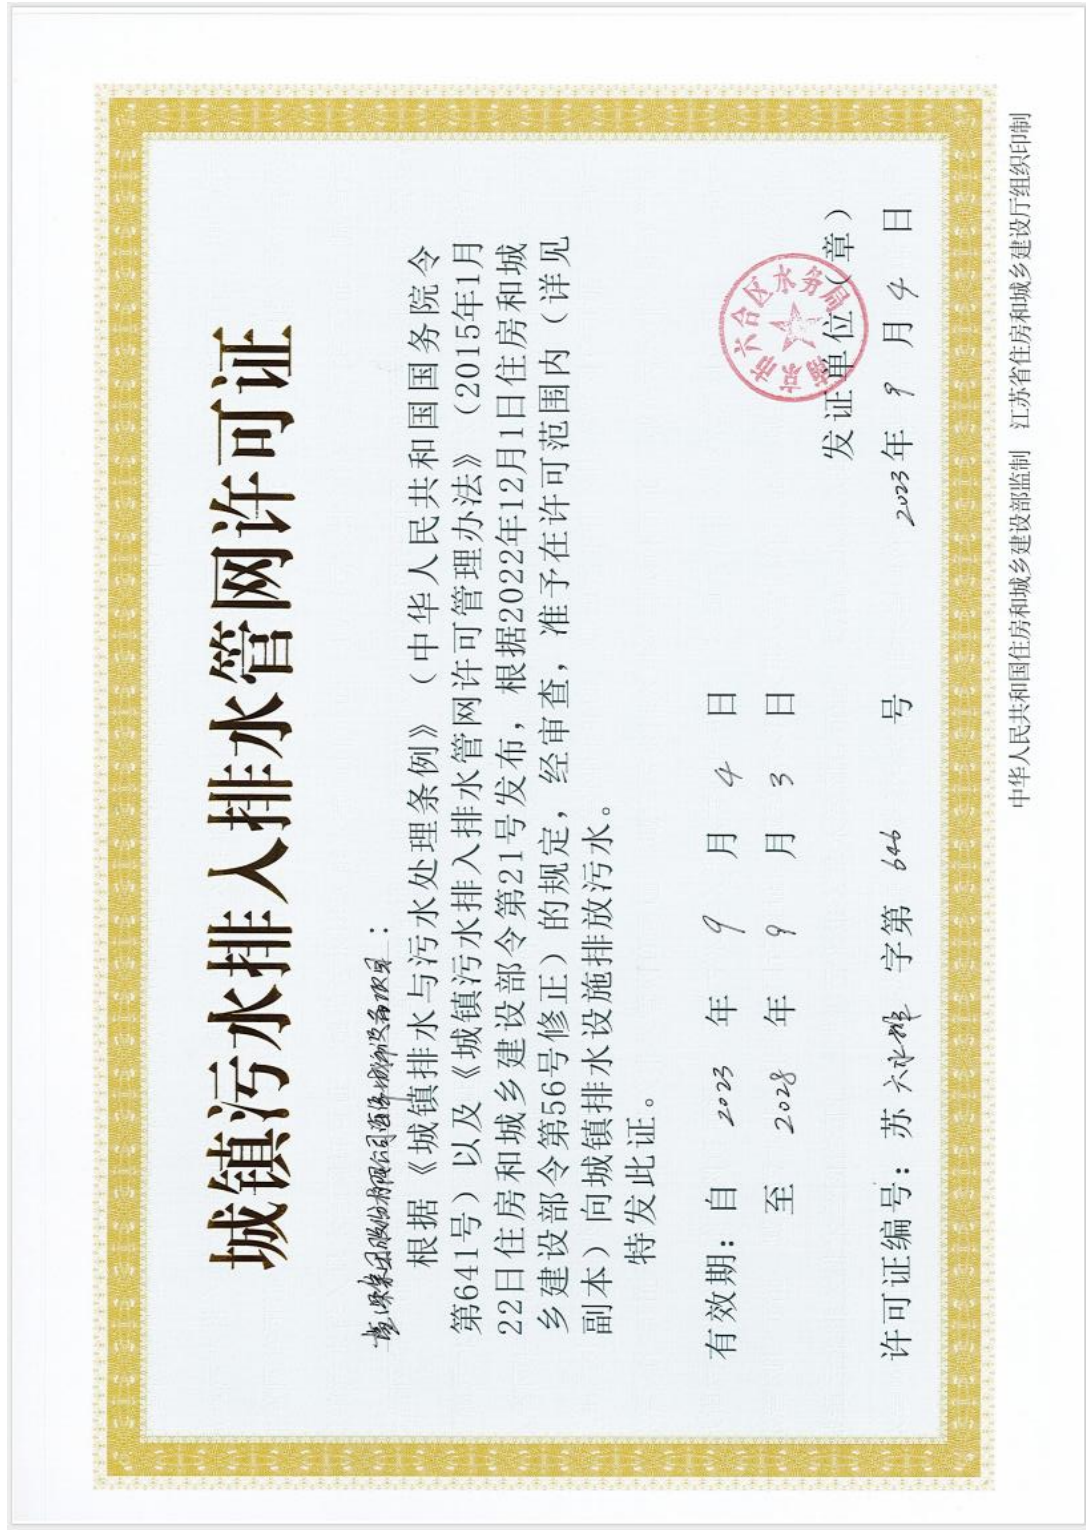 城镇污水排入排水管网许可证
集团股份有限公司
根据《城镇排水与污水处理条例》（中华人民共和国国务院令
第641号）以及《城镇污水排入排水管网许可管理办法》（2015年1月
22日住房和城乡建设部令第21号发布，根据2022年12月1日住房和城
乡建设部令第56号修正）的规定，经审查，准予在许可范围内（详见
副本）向城镇排水设施排放污水。
特发此证。
有效期：自 2023 年 9 月 4 日
至 2028 年 9 月 3 日
南京市六合区水务局
发证单位（章）
许可证编号：苏 六水排 字第 646 号
2023年 9 月 4 日
中华人民共和国住房和城乡建设部监制 江苏省住房和城乡建设厅组织印制